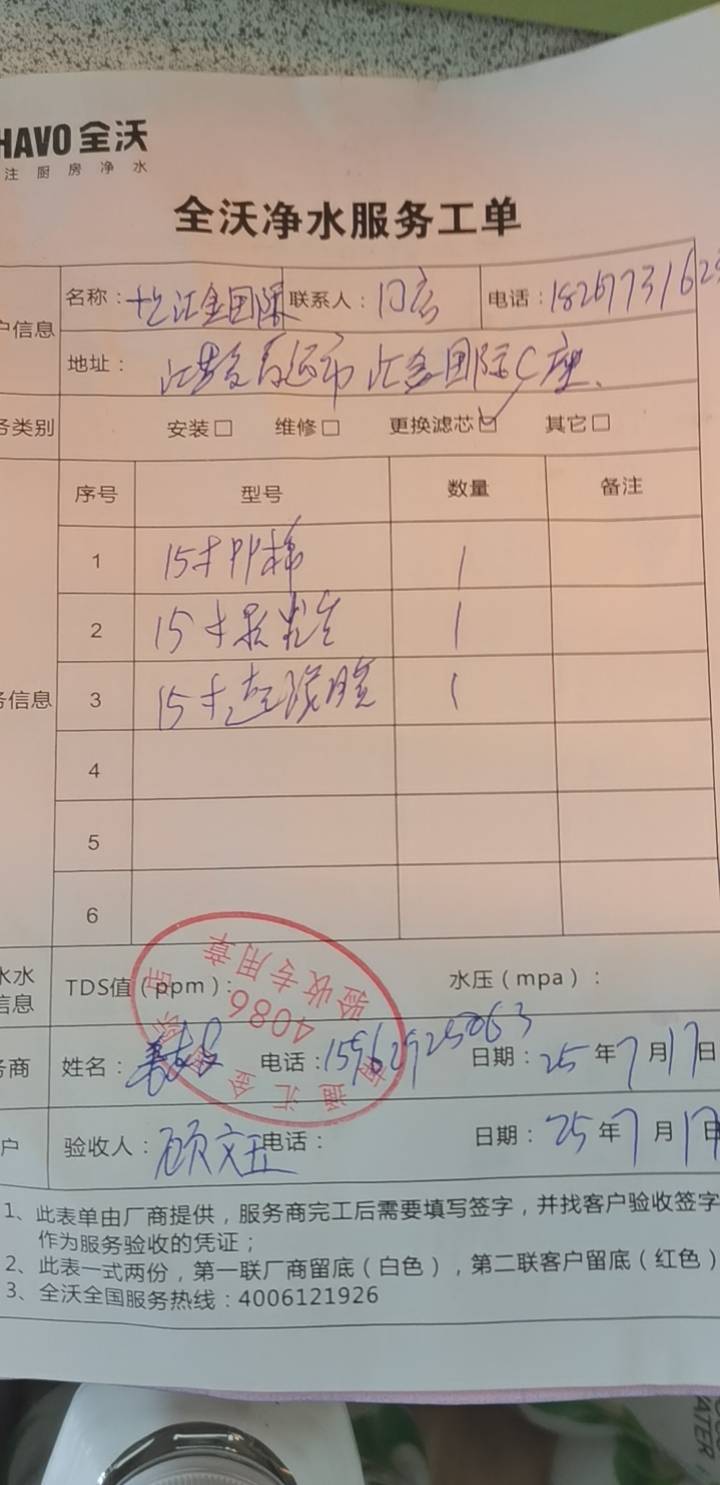 HAVO 全沃
注 厨 房 净 水
全沃净水服务工单
户信息
名称：汇金国际 联系人：门店 电话：182677316
地址： 江苏省 市 汇金国际C座
务类别 安装□ 维修□ 更换滤芯☑ 其它□
序号 型号 数量 备注
务信息
1 15寸PP棉 1
2 15寸颗粒 1
3 15寸超滤膜 1
4
5
6
水水信息 TDS值（ppm）： 水压（mpa）：
验收专用章
4086
通汇金
务商 姓名： 电话：15962925063 日期：25 年 7 月 17 日
户 验收人：顾文 电话： 日期：25 年 7 月 17 日
1、此表单由厂商提供，服务商完工后需要填写签字，并找客户验收签字
作为服务验收的凭证；
2、此表一式两份，第一联厂商留底（白色），第二联客户留底（红色）
3、全沃全国服务热线：4006121926
ATER